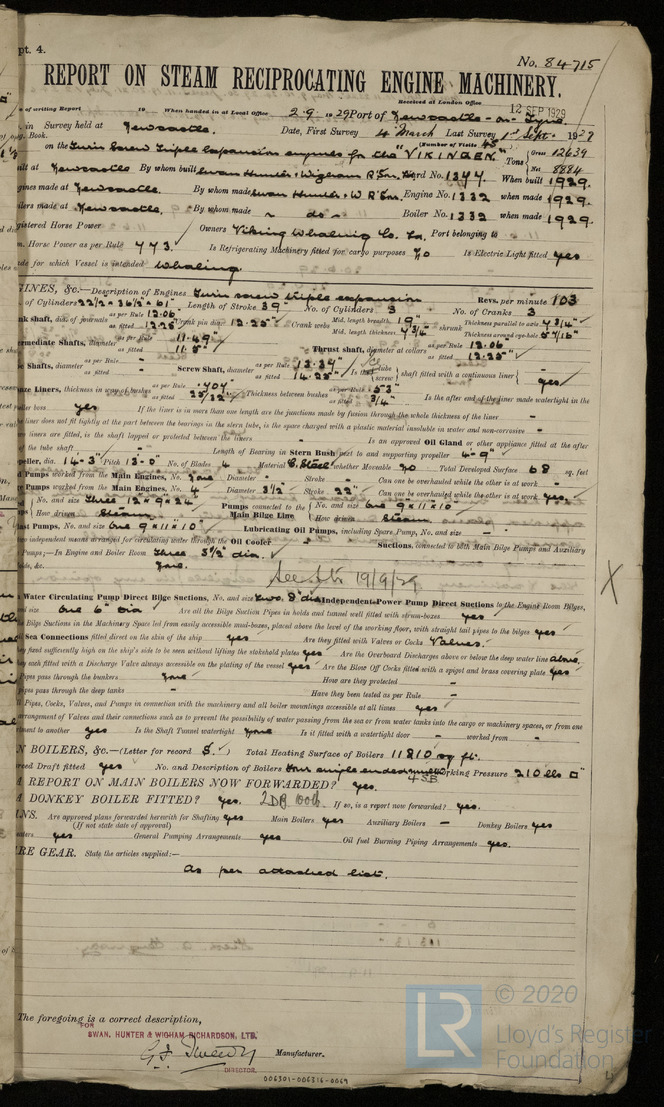 pt. 4.
No. 84715
REPORT ON STEAM RECIPROCATING ENGINE MACHINERY.
Received at London Office
12 SEP 1929
of writing Report 19 When handed in at Local Office 2.9. 1929 Port of Newcastle-on-Tyne
in Survey held at Newcastle. Date, First Survey 4 March Last Survey 1st Sept. 1929
Book. (Number of Visits 45
on the Twin Screw Triple expansion engines for the "VIKINGEN." Tons Gross 12639
Net 8884
ilt at Newcastle By whom built Swan Hunter, Wigham R'Son. Yard No. 1377. When built 1929.
gines made at Newcastle. By whom made Swan Hunter W R'Son. Engine No. 1332 when made 1929.
ilers made at Newcastle. By whom made do Boiler No. 1332 when made 1929.
gistered Horse Power Owners Viking Whaling Co. La. Port belonging to
m. Horse Power as per Rule 773. Is Refrigerating Machinery fitted for cargo purposes No Is Electric Light fitted yes
ade for which Vessel is intended Whaling
GINES, &c.—Description of Engines Twin screw triple expansion Revs. per minute 103
of Cylinders 22½ - 36½ - 61" Length of Stroke 39" No. of Cylinders 3 No. of Cranks 3
nk shaft, dia. of journals as per Rule 12.06 as fitted 12.25" Crank pin dia. 12.25" Crank webs Mid. length breadth 19" Mid. length thickness 7¾" shrunk Thickness parallel to axis 7¾" Thickness around eye-hole 5 7/16"
ermediate Shafts, diameter as per Rule 11.49" as fitted 11.5" Thrust shaft, diameter at collars as per Rule 12.06 as fitted 12.25"
e Shafts, diameter as per Rule - as fitted - Screw Shaft, diameter as per Rule 13.39" as fitted 14.25" Is the tube screw shaft fitted with a continuous liner yes
nze Liners, thickness in way of bushes as per Rule .704" as fitted 25/32" Thickness between bushes as per Rule .553" as fitted 3/4" Is the after end of the liner made watertight in the
peller boss yes If the liner is in more than one length are the junctions made by fusion through the whole length of the liner -
e liner does not fit tightly at the part between the bearings in the stern tube, is the space charged with a plastic material insoluble in water and non-corrosive -
o liners are fitted, is the shaft lapped or protected between the liners - Is an approved Oil Gland or other appliance fitted at the after
of the tube shaft - Length of Bearing in Stern Bush next to and supporting propeller 4-9"
peller, dia. 14-3" Pitch 13-0" No. of Blades 4 Material C. Steel whether Moveable No Total Developed Surface 68 sq. feet
Pumps worked from the Main Engines, No. None Diameter - Stroke - Can one be overhauled while the other is at work -
Pumps worked from the Main Engines, No. 4 Diameter 3½" Stroke 22" Can one be overhauled while the other is at work yes.
No. and size Three 12 × 9 × 24 Pumps connected to the Main Bilge Line No. and size one 9 × 11 × 10
How driven Steam How driven Steam
ast Pumps, No. and size one 9" × 11" × 10" Lubricating Oil Pumps, including Spare Pump, No. and size -
wo independent means arranged for circulating water through the Oil Cooler - Suctions, connected to both Main Bilge Pumps and Auxiliary
Pumps;—In Engine and Boiler Room Three 3½" dia.
lds, &c. None.
19/9/29
Water Circulating Pump Direct Bilge Suctions, No. and size Two. 8" dia Independent Power Pump Direct Suctions to the Engine Room Bilges,
and size one 6" Dia Are all the Bilge Suction Pipes in holds and tunnel well fitted with strum-boxes yes
Bilge Suctions in the Machinery Space led from easily accessible mud-boxes, placed above the level of the working floor, with straight tail pipes to the bilges yes
Sea Connections fitted direct on the skin of the ship yes Are they fitted with Valves or Cocks Valves.
they fixed sufficiently high on the ship's side to be seen without lifting the stokehold plates yes Are the Overboard Discharges above or below the deep water line above.
ey each fitted with a Discharge Valve always accessible on the plating of the vessel yes Are the Blow Off Cocks fitted with a spigot and brass covering plate yes
Pipes pass through the bunkers None How are they protected -
ipes pass through the deep tanks - Have they been tested as per Rule -
Pipes, Cocks, Valves, and Pumps in connection with the machinery and all boiler mountings accessible at all times yes
arrangement of Valves and their connections such as to prevent the possibility of water passing from the sea or from water tanks into the cargo or machinery spaces, or from one
tment to another yes Is the Shaft Tunnel watertight None Is it fitted with a watertight door - worked from -
N BOILERS, &c.—(Letter for record S.) Total Heating Surface of Boilers 11810 sq ft.
ced Draft fitted yes No. and Description of Boilers four single ended 4 S.B. Working Pressure 210 lbs
A REPORT ON MAIN BOILERS NOW FORWARDED? Yes.
A DONKEY BOILER FITTED? yes. 2DB 100 lb If so, is a report now forwarded? yes.
NS. Are approved plans forwarded herewith for Shafting yes Main Boilers yes Auxiliary Boilers - Donkey Boilers yes
(If not state date of approval)
aters yes General Pumping Arrangements yes Oil fuel Burning Piping Arrangements yes.
RE GEAR. State the articles supplied:—
As per attached list.
The foregoing is a correct description,
FOR
SWAN, HUNTER & WIGHAM RICHARDSON, LTD.
Manufacturer.
DIRECTOR.
006301-006316-0069
LR © 2020
Lloyd's Register
Foundation